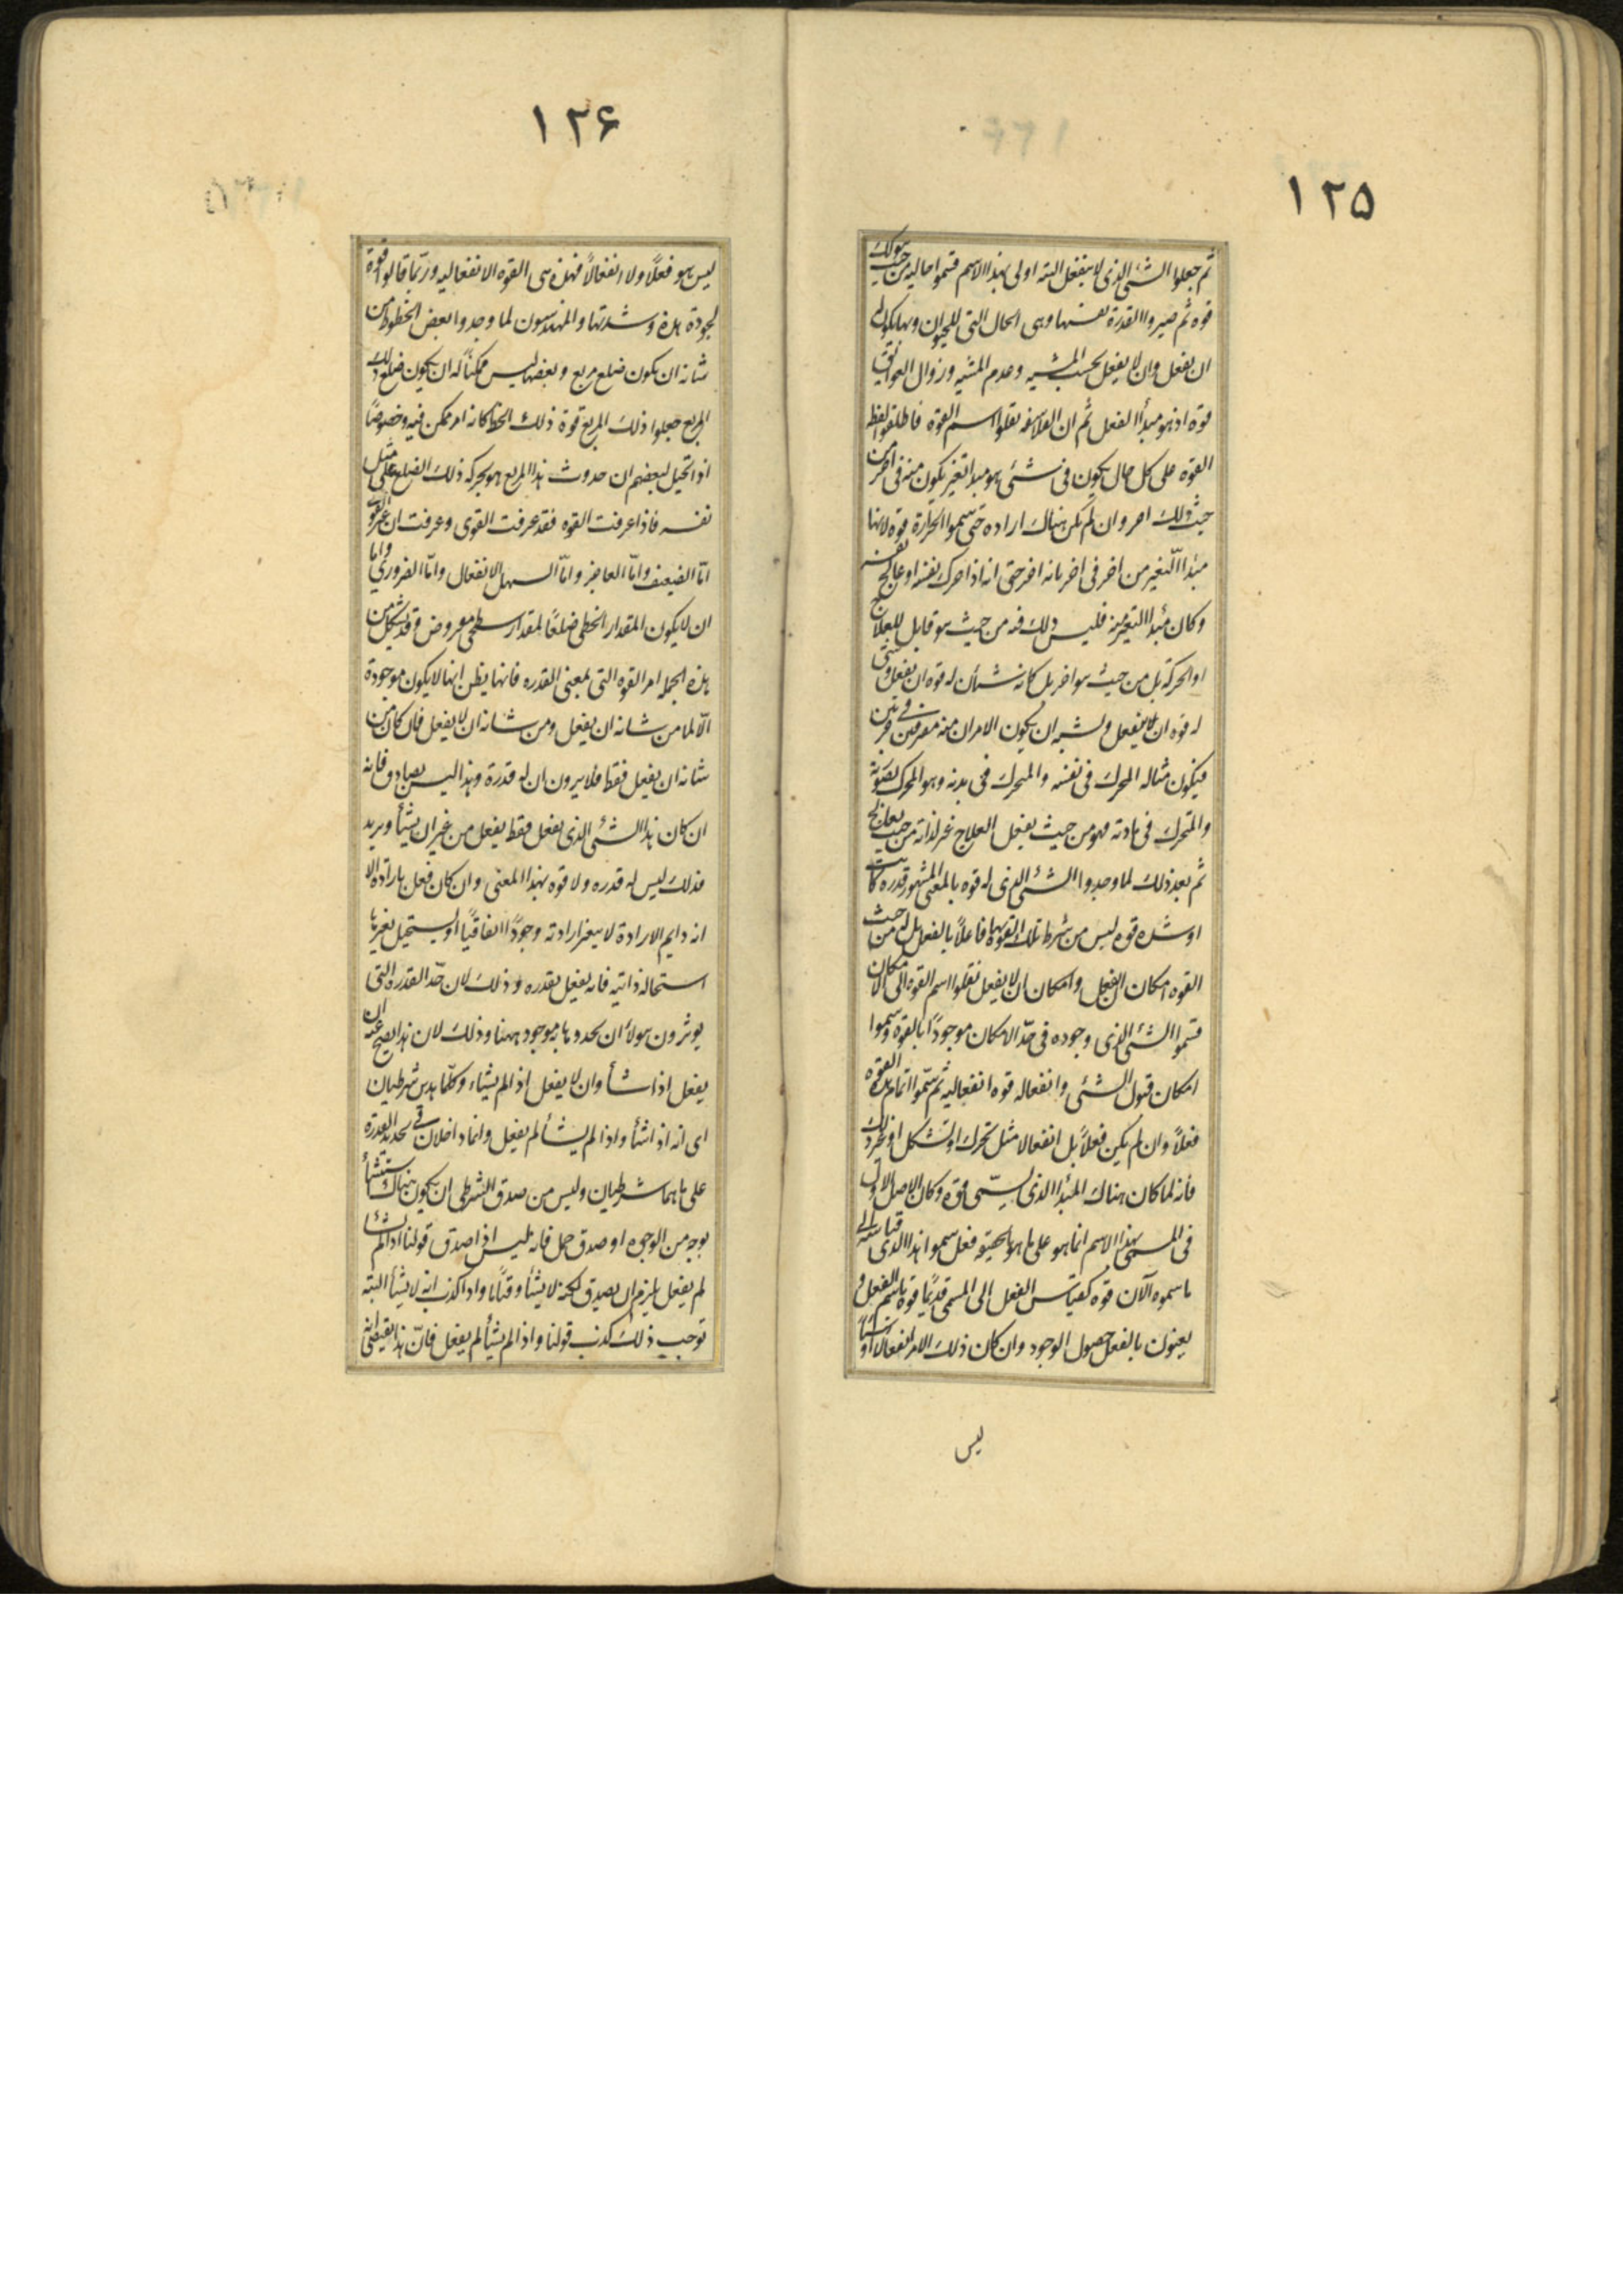 ١٢٥
ثم جعلوا الشئ الذى لا ينفعل البته اولى بهذا الاسم فسموا حاليه من حيث هو كذلك
قوه ثم صيروا القدرة نفسها وهى الحال التى للحيوان وبها يكون له
ان يفعل وان لا يفعل بحسب المشيه وعدم المشيه وزوال العوايق
قوة اذ هو مبدأ الفعل ثم ان الفلاسفه نقلوا اسم القوه فاطلقوا لفظ
القوه على كل حال يكون فى شئ هو مبدا تغير يكون منه فى اخر من
حيث ذلك اخر وان لم يكن هناك اراده حتى سموا الحرارة قوة لانها
مبدأ التغير من اخر فى اخر بانه اخر حتى انه اذا حرك نفسه او عالج نفسه
وكان مبدأ التغير منه فليس ذلك فيه من حيث هو قابل للعلاج
او الحركة بل من حيث هو اخر بل كانه شيأن له قوه ان يفعل وشئ
له قوه ان لا يفعل ويشبه ان يكون الامران منه مفترقين فى جزئين
فيكون مثاله المحرك فى نفسه والمتحرك فى بدنه وهو المحرك بصورته
والمتحرك فى مادته فهو من حيث يفعل العلاج غير لذاته من حيث يعالج
ثم بعد ذلك لما وجدوا الشئ الذى له قوه بالمعنى المشهور قدره كانت
او شدة قوه ليس من شرط تلك القوة ان يكون بها فاعلاً بالفعل بل له من حيث
القوه امكان ان يفعل وامكان ان لا يفعل نقلوا اسم القوه الى الامكان
فسموا الشئ الذى وجوده فى حد الامكان موجوداً بالقوه وسموا
امكان قبول الشئ وانفعاله قوه انفعاليه ثم سموا اتمام هذه القوه
فعلاً وان لم يكن فعلاً بل انفعالا مثل تحرك او تشكل او غير ذلك
فانه لما كان هناك المبدأ الذى يسمى قوة وكان الاصل الاول
فى المسمى بهذا الاسم انما هو على ما هو بالحقيقه فعل سموا هذا الذى قياسه الى
ما سموه الآن قوه كقياس الفعل الى المسمى قديماً قوة باسم الفعل و
يعنون بالفعل حصول الوجود وان كان ذلك الامر انفعالا او شيئاً
ليس
١٢۶
ليس هو فعلاً ولا انفعالاً فهذه هى القوه الانفعاليه وربما قالوا قوة
لجودة هذه وشدتها والمهندسون لما وجدوا بعض الخطوط من
شانه ان يكون ضلع مربع وبعضها ليس ممكناً له ان يكون ضلع ذلك
المربع جعلوا ذلك المربع قوة ذلك الخط كانه امر ممكن فيه وخصوصاً
اذ تخيل لبعضهم ان حدوث هذا المربع هو بحركه ذلك الضلع على مثل
نفسه فاذا عرفت القوه فقد عرفت القوى وعرفت ان غير القوى
امّا الضعيف وامّا العاجز وامّا السهل الانفعال وامّا الضرورى واما
ان لا يكون المقدار الخطى ضلعاً لمقدار سطحى مفروض وقد يشكل من
هذه الجمله امر القوه التى بمعنى القدره فانها يظن انها لا يكون موجودة
الّا لما من شانه ان يفعل ومن شانه ان لا يفعل فان كان من
شانه ان يفعل فقط فلا يرون ان له قدرة وهذا ليس بصادق فانه
ان كان هذا الشئ الذى يفعل فقط يفعل من غير ان يشأ ويريد
فذلك ليس له قدره ولا قوه بهذا المعنى وان كان يفعل بارادة الا
انه دايم الارادة لا يتغير ارادته وجوداً اتفاقياً او يستحيل تغيرها
استحاله ذاتيه فانه يفعل بقدره وذلك لان حدّ القدره التى
يوثرون هولأ ان يحدوها به موجود ههنا وذلك لان هذا يصح عنه ان
يفعل اذا شأ وان لا يفعل اذ الم يشاء وكلا هذين شرطيان
اى انه اذا شأ واذا لم يشأ لم يفعل وانما داخلان فى تحديد القدرة
على ما هما شرطيان وليس من صدق الشرطى ان يكون هناك استثنأ
بوجه من الوجوه او صدق حمل فانه ليس اذا صدق قولنا اذا لم يشأ
لم يفعل يلزم ان يصدق لكنه لا يشأ وقتاً ما واذا كذب انه لا يشأ البته
توجب ذلك كذب قولنا واذا لم يشأ لم يفعل فانّ هذا يقتضى انه